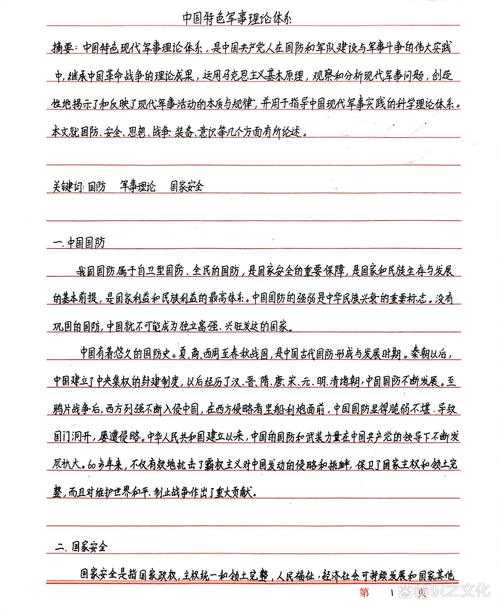 中国特色军事理论体系
摘要：中国特色现代军事理论体系，是中国共产党人在国防和军队建设与军事斗争的伟大实践
中，继承中国革命战争的理论成果，运用马克思主义基本原理，观察和分析现代军事问题，创造
性地揭示了和反映了现代军事活动的本质与规律，并用于指导中国现代军事实践的科学理论体系。
本文就国防、安全、思想、战争、装备、意识等几个方面有所论述。
关键词：国防 军事理论 国家安全
一．中国国防
我国国防属于自卫型国防、全民的国防，是国家安全的重要保障，是国家和民族生存与发展
的基本前提，是国家利益和民族利益的最高体系。中国国防的强弱是中华民族兴衰的重要标志。没有
巩固的国防，中国就不可能成为独立富强、兴旺发达的国家。
中国有着悠久的国防史。夏、商、西周至春秋战国，是中国古代国防形成与发展时期。秦朝以后，
中国建立了中央集权的封建制度，以后经历了汉、晋、隋、唐、宋、元、明、清诸朝，中国国防不断发展。至
鸦片战争后，西方列强不断入侵中国，在西方侵略者坚船利炮面前，中国国防显得脆弱不堪，导致
国门洞开，屡遭侵略。中华人民共和国建立以来，中国的国防和武装力量在中国共产党的领导下不断发
展状大。60多年来，不仅有效地抗击了霸权主义对中国发动的侵略和挑衅，保卫了国家主权和领土完
整，而且对维护世界和平、制止战争作出了重大贡献。
二．国家安全
国家安全是指国家政权，主权统一和领土完整，人民福祉，经济社会可持续发展和国家其他
第 1 页